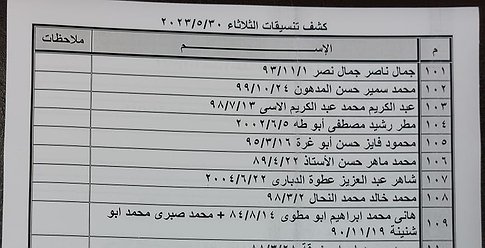 كشف تنسيقات الثلاثاء ٢٠٢٣/٥/٣٠
م الإســـــــم ملاحظات
١٠١ جمال ناصر جمال نصر ٩٣/١١/١
١٠٢ محمد سمير حسن المدهون ٩٩/١٠/٢٤
١٠٣ عبد الكريم محمد عبد الكريم الاسى ٩٨/٧/١٣
١٠٤ مطر رشيد مصطفى أبو طه ٢٠٠٢/٦/٥
١٠٥ محمود فايز حسن أبو غرة ٩٥/٣/١٦
١٠٦ محمد ماهر حسن الأستاذ ٨٩/٤/٢٢
١٠٧ شاهر عبد العزيز عطوة الدبارى ٢٠٠٤/٦/٢٢
١٠٨ محمد خالد محمد النحال ٩٨/٣/٢
١٠٩ هانى محمد ابراهيم ابو مطوى ٨٤/٨/١٤ + محمد صبرى محمد ابو
شنينة ٩٠/١١/١٩